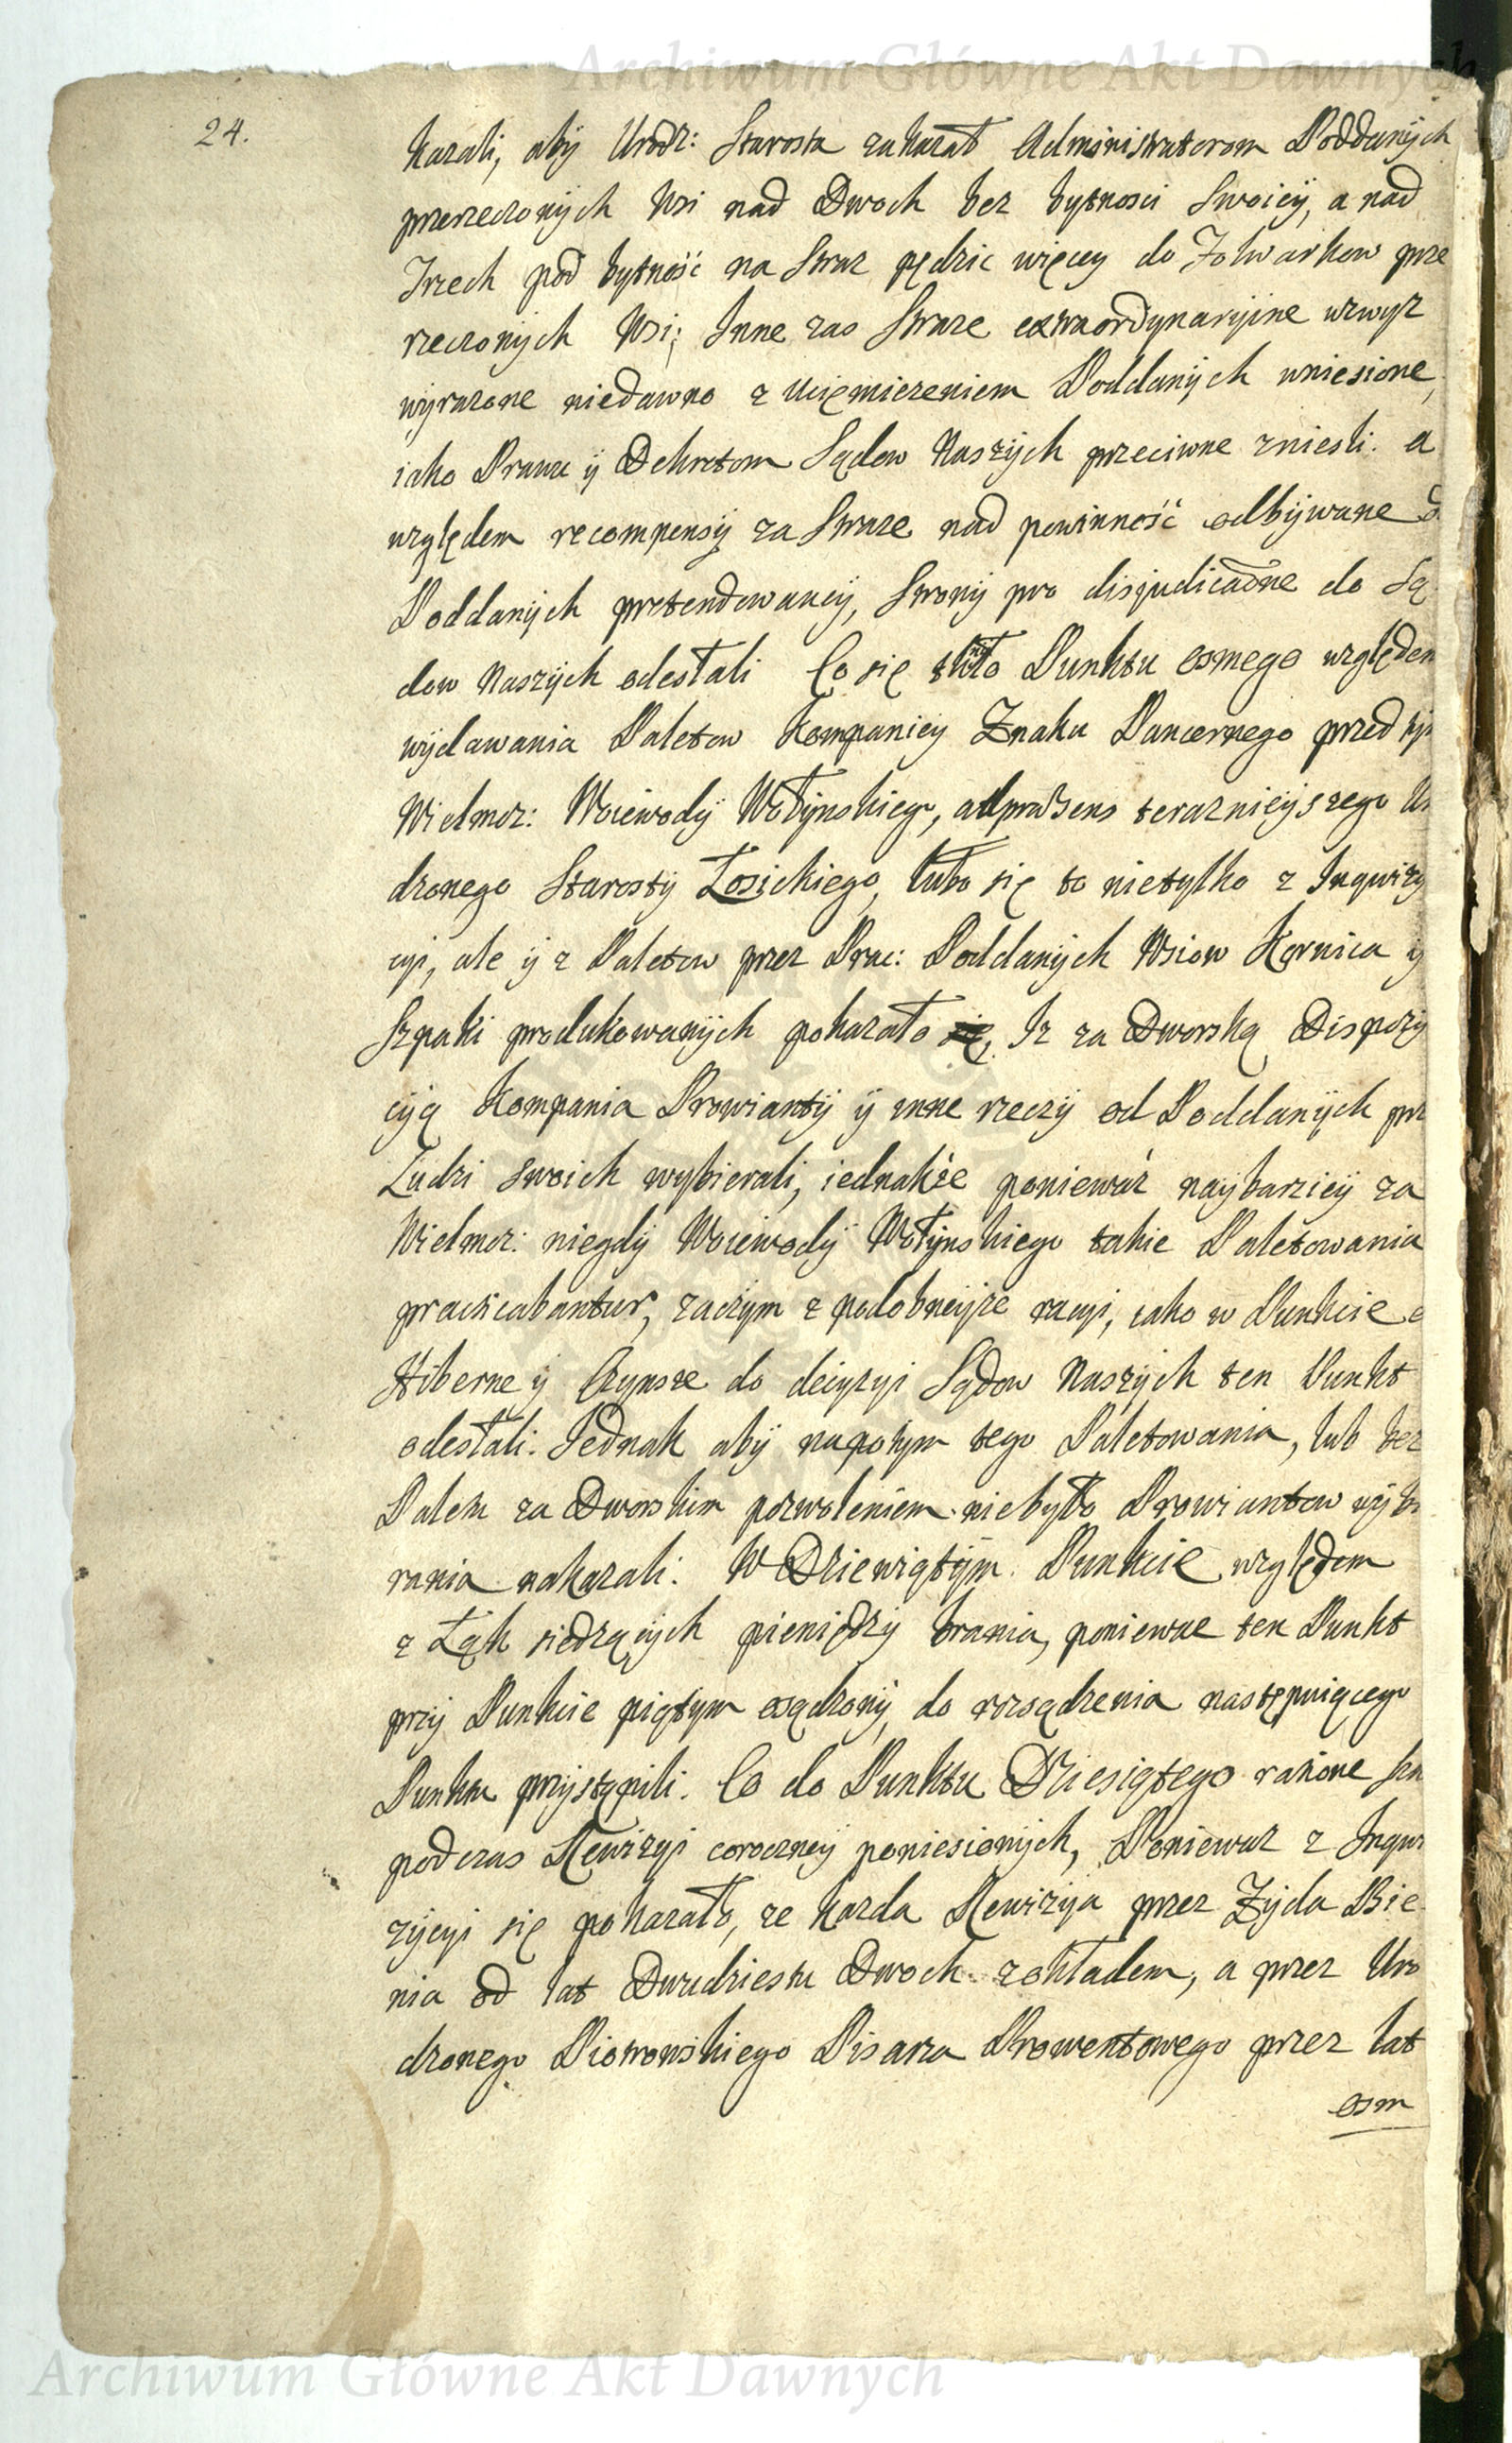 Archiwum Główne Akt Dawnych
24.
kazali, aby Urodz: Starosta zakazał Administratorom Poddanych
przerzeczonych Wsi nad Dwoch bez bytnosci Swoiey, a nad
Trzech pod bytność na Straz pędzic więcey do Folwarkow prze
rzeczonych Wsi; Inne zas Straze extraordynaryine wzwyz
wyrazone niedawno z Uciemiezeniem Poddanych wniesione,
iako Prawu y Dekretom Sądow Naszych przeciwne zniesli. a
względem recompensy za Straze nad powinność odbywane
Poddanych pretendowaney, Strony pro disjudicaõne do Są
dow Naszych odesłali Co się Punktu osmego względem
wydawania Paletow Kompaniey Znaku Pancernego przed tym
Wielmoz: Woiewody Wołynskiego, ad præsens teraznieyszego Ur
dzonego Starosty Łosickiego, lubo się to nietylko z Inqwizy
cyi, ale y z Paletow przez Prac: Poddanych Wsiow Kornica y
Szpaki produkowanych pokazało się, Iz za Dworską Dispozy
cyą Kompania Prowianty y inne rzeczy od Poddanych prz
Ludzi swoich wybierali, iednakże poniewaź naybarziey za
Wielmoz: niegdy Woiewody Wołynskiego takie Paletowania
practicabantur, zaczym z podobneyze racyi, iako w Punkcie o
Hiberne y Czynsze do decyzyi Sądow Naszych ten Punkt
odesłali. Jednak aby napotym tego Paletowania, lub bez
Paletu za Dworskim pozwoleniem niebyło Prowiantow wybi
rania nakazali. W Dziewiątym Punkcie względem
z Łąk siedzących pieniędzy brania, poniewaz ten Punkt
przy Punkcie piątym osądzony, do rozsądzenia następuiącego
Punktu przystąpili. Co do Punktu Dziesiątego ratione
podczas Rewizyi coroczney poniesionych, Poniewaz z Inqwi
zycyi się pokazało, ze kazda Rewizya przez Zyda Bie
nia od lat Dwudziestu Dwoch z okładem, a przez Uro
dzonego Piotrowskiego Pisarza Prowentowego przez lat
osm
Archiwum Główne Akt Dawnych